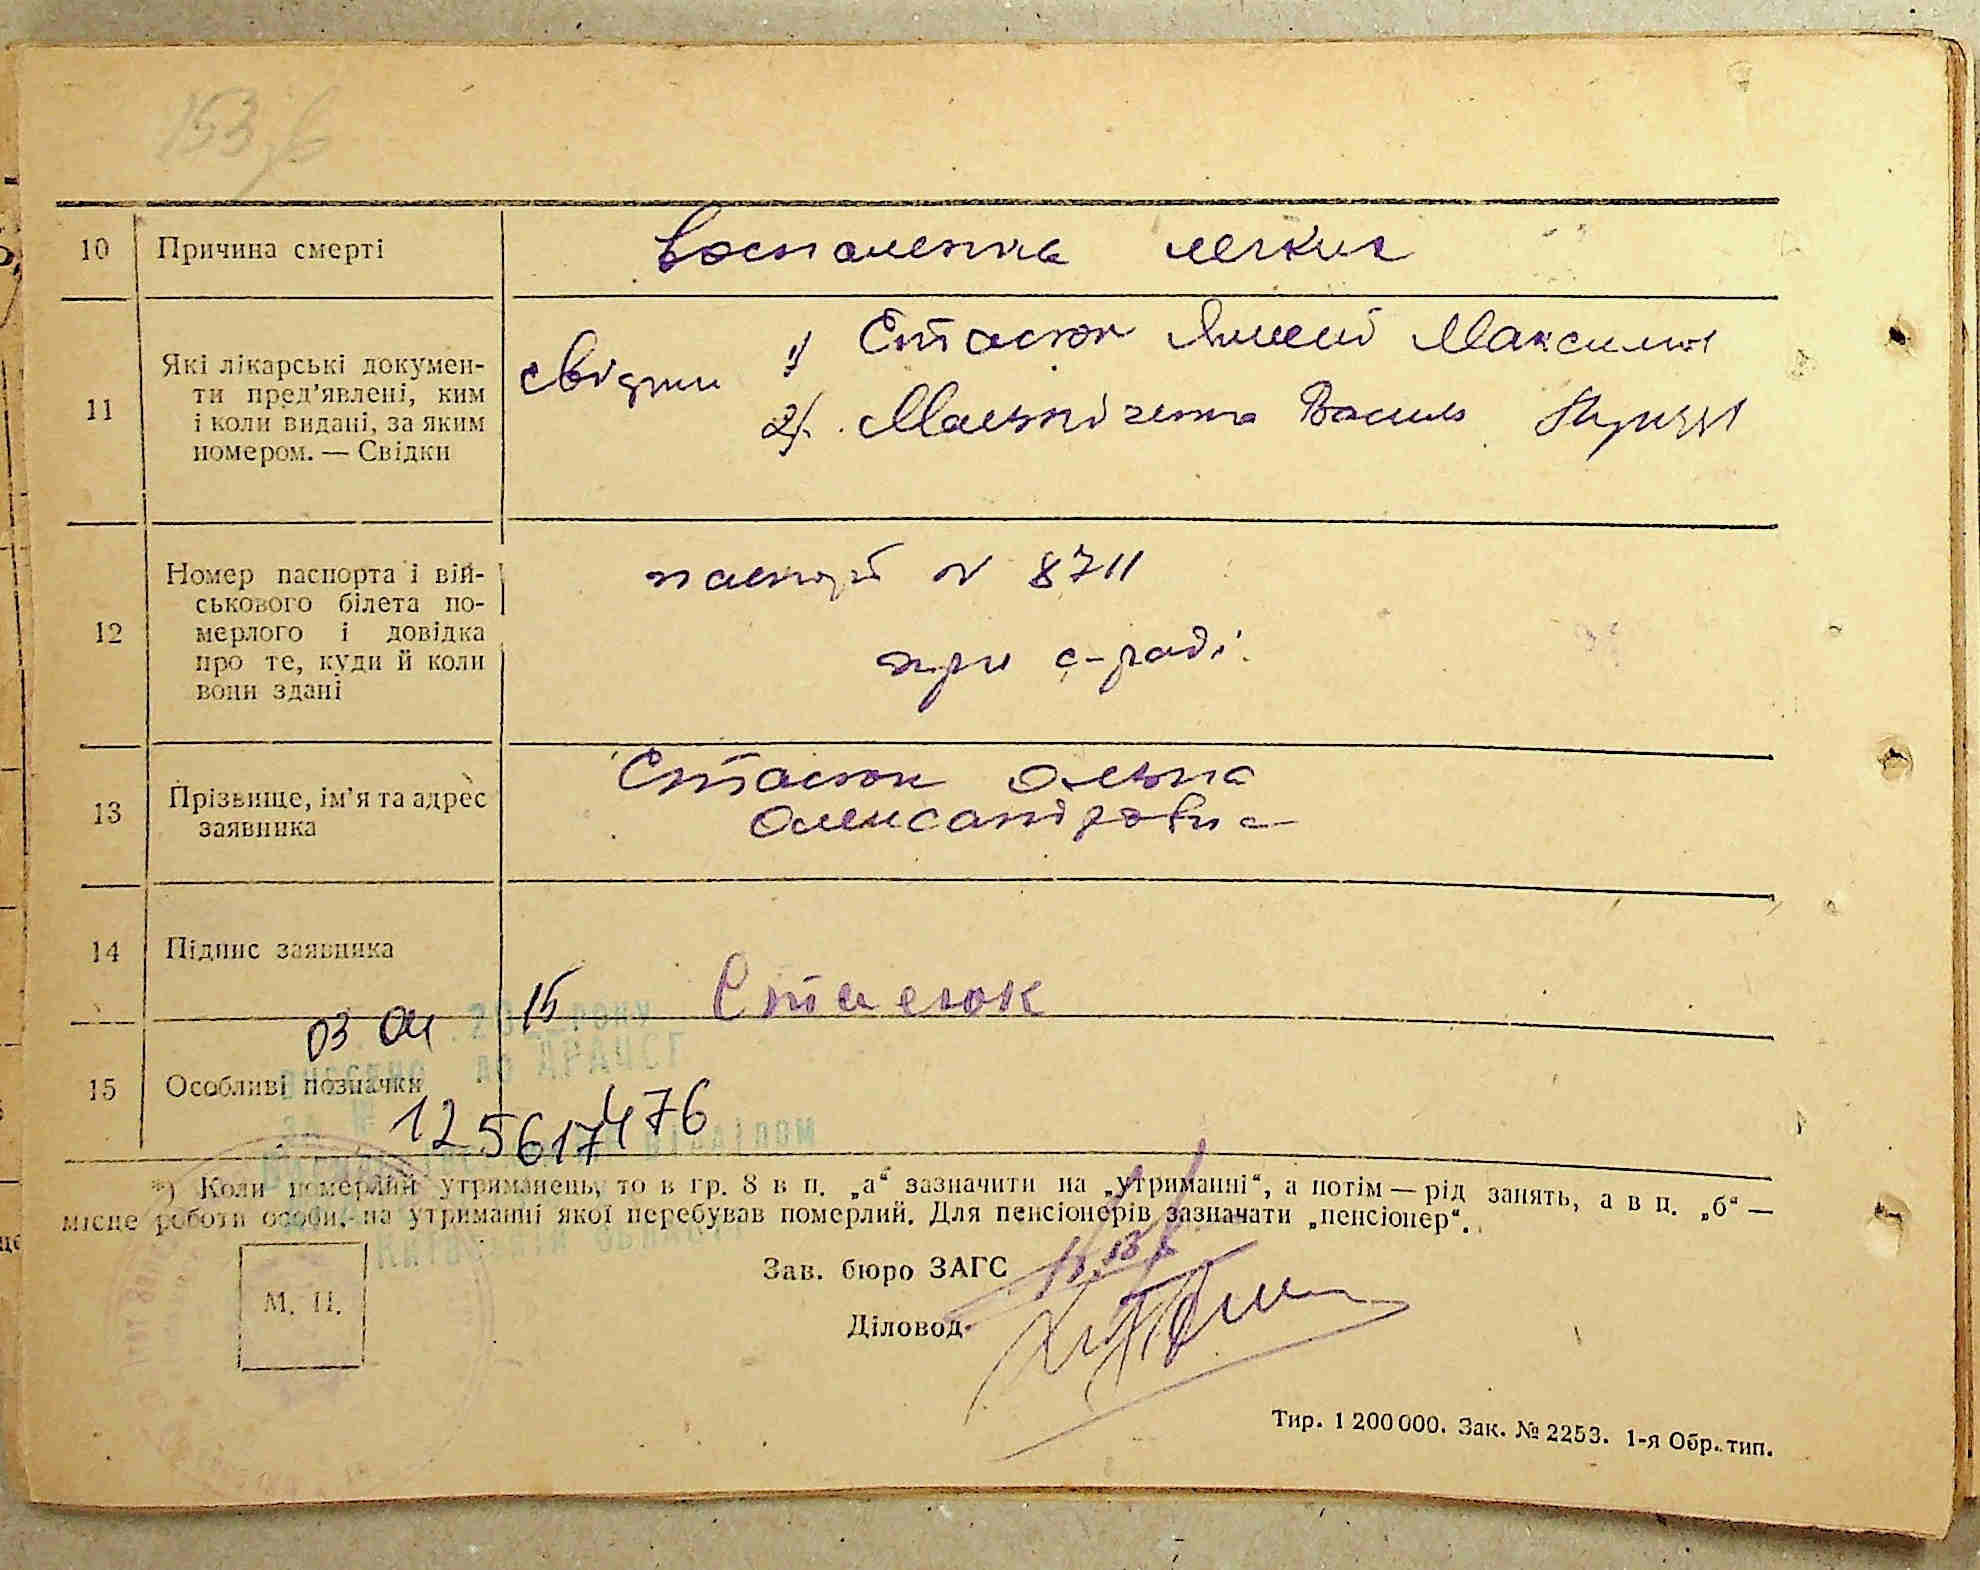 153 зв
10 Причина смерті
Воспаления легких
11 Які лікарські докумен-
ти пред'явлені, ким
і коли видані, за яким
номером. — Свідки
свідки 1) Стасюк Максим
2). Василь
12 Номер паспорта і вій-
ськового білета по-
мерлого і довідка
про те, куди й коли
вони здані
паспорт № 8711
при с-раді.
13 Прізвище, ім'я та адрес
заявника
Стасюк Ольга
Олександровна
14 Підпис заявника
Стасюк
03 04 2015 року
15 Особливі позначки
внесено до ДРАЦСГ
за № 125617476
відділом
*) Коли померлий утриманець, то в гр. 8 в п. „а“ зазначити на „утриманні“, а потім — рід занять, а в п. „б“ —
місце роботи особи, на утриманні якої перебував померлий. Для пенсіонерів зазначати „пенсіонер“.
Київській області
М. П.
Зав. бюро ЗАГС
Діловод
Тир. 1 200 000. Зак. № 2253. 1-я Обр. тип.